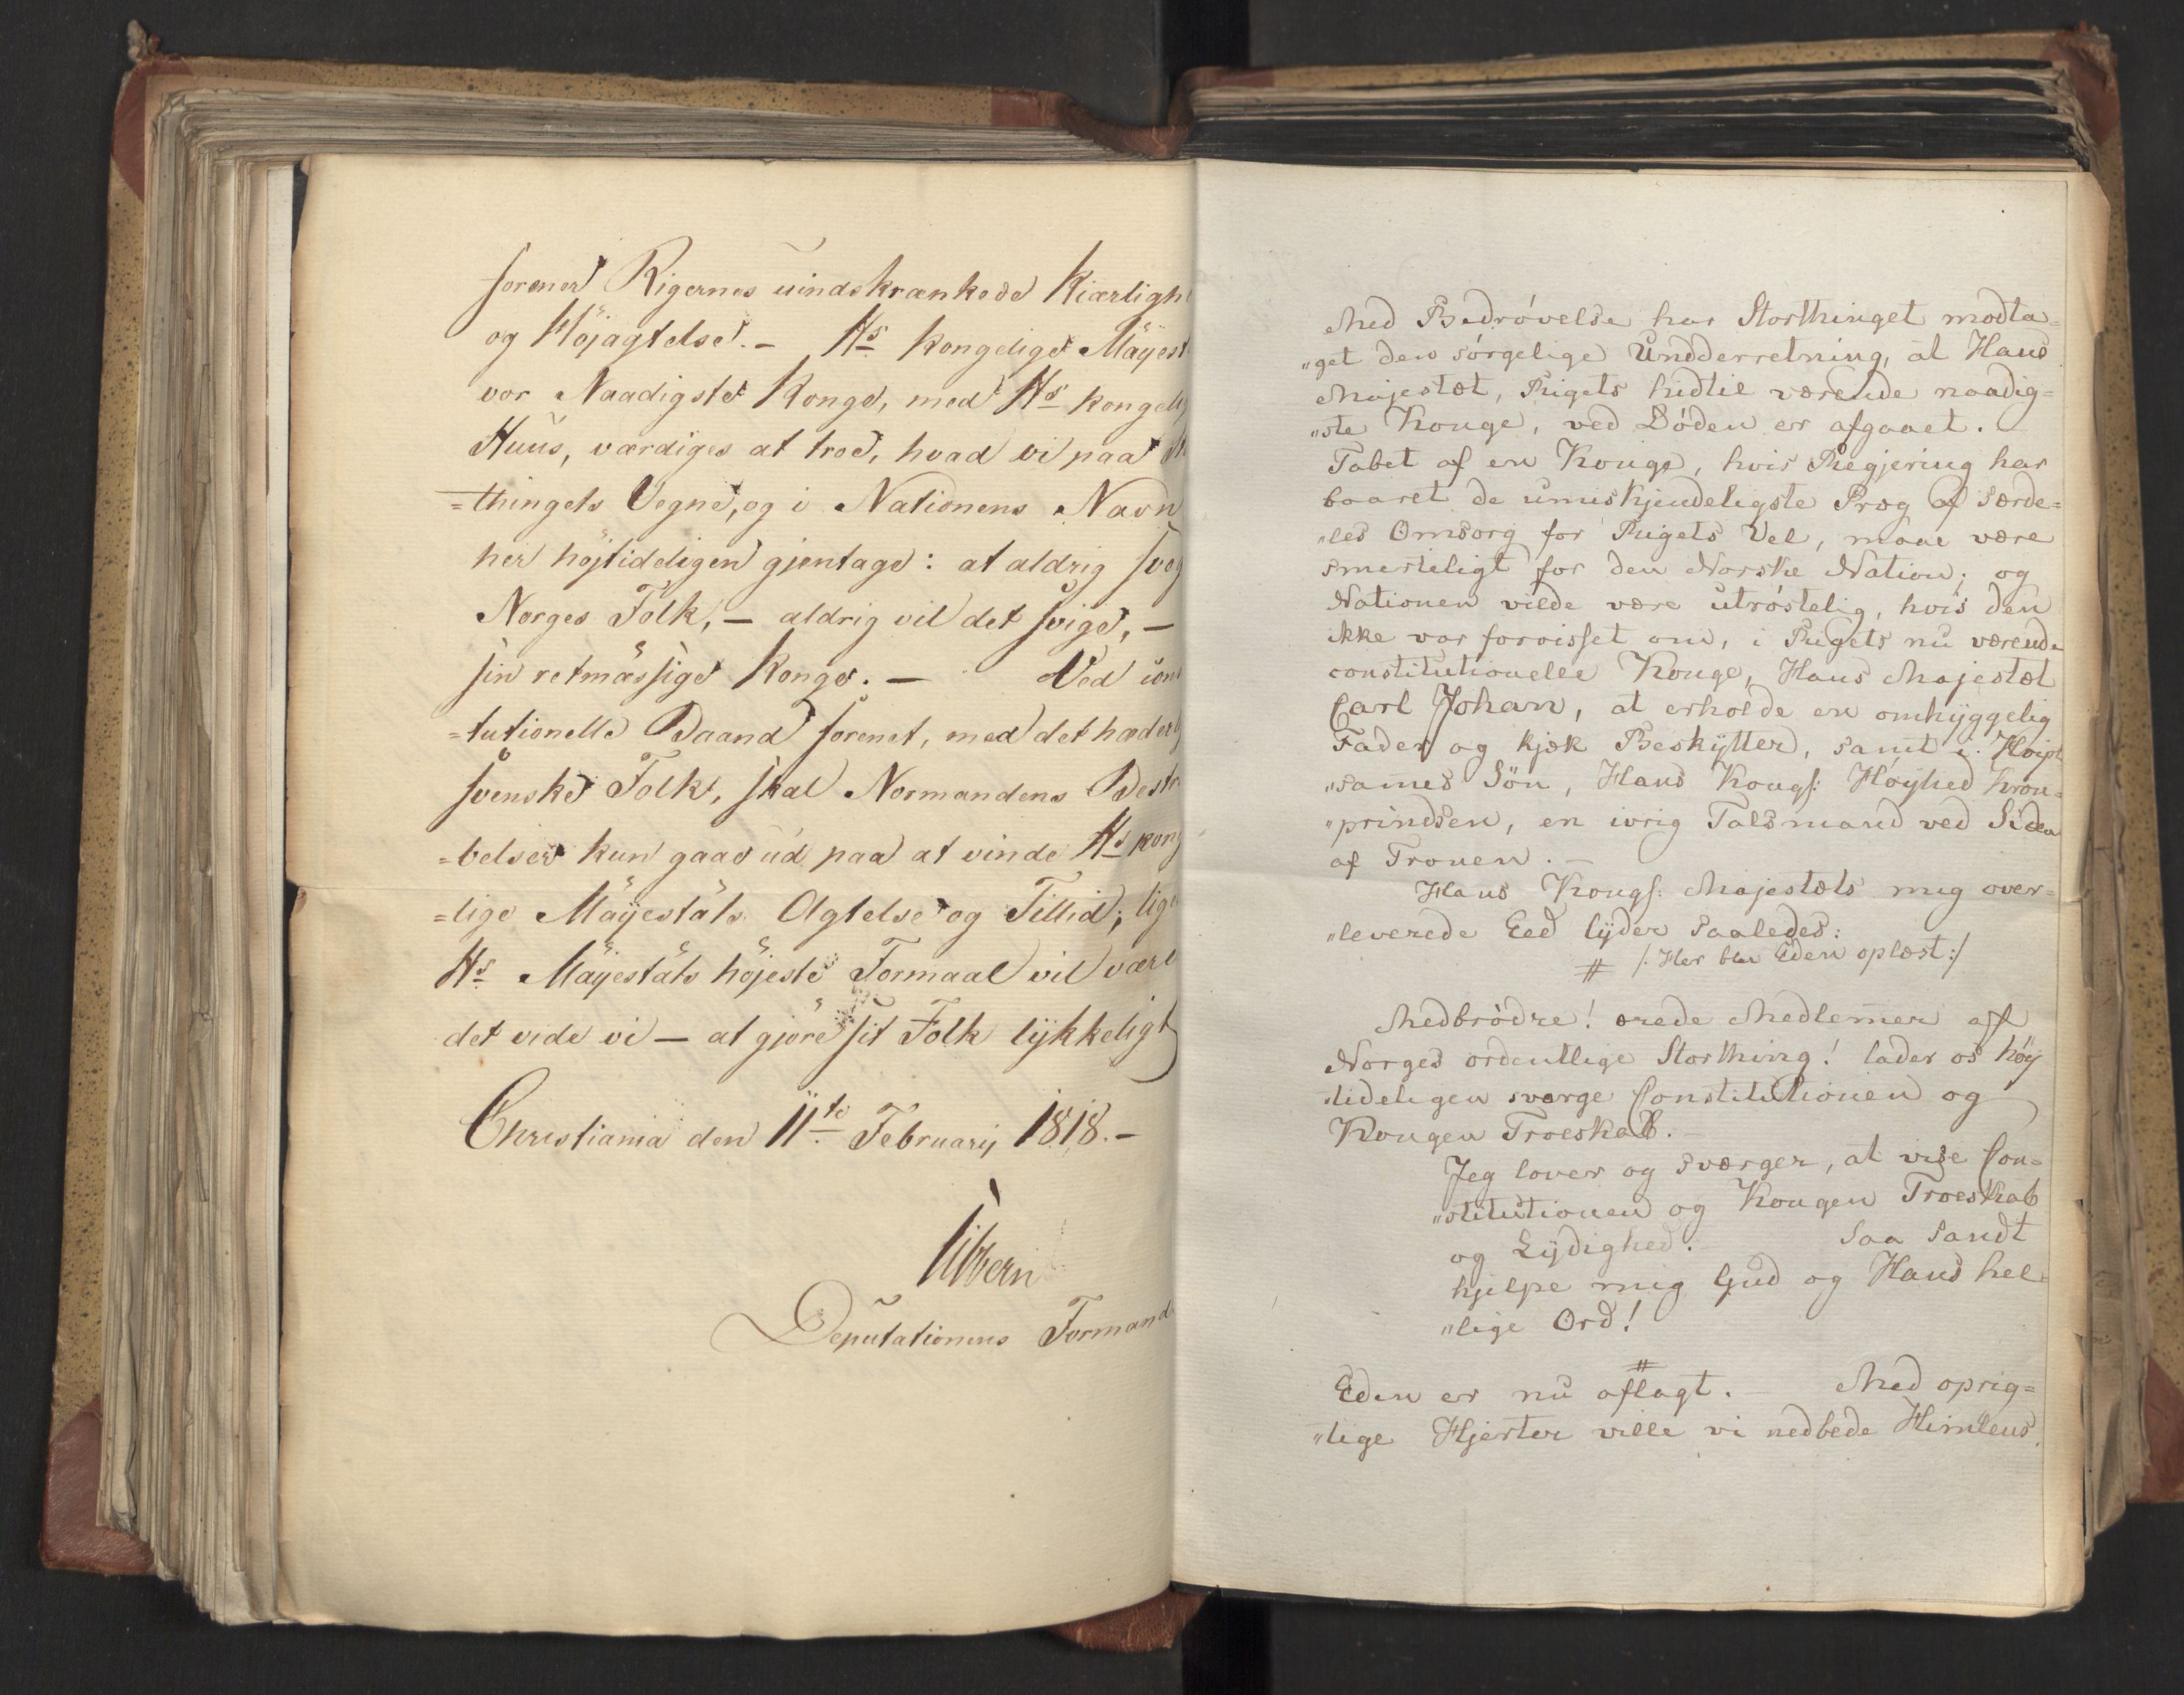 forener Rigernes uindskrænkede Kiærligh
og Höjagtelse. – Hs Kongelige Mayest
vor Naadigste Konge, med Hs kongeli
Huus, værdiges at troe, hvad vi paa St
=thingets Vegne, og i Nationens Navn
her höjtideligen gjentage: at aldrig sveg
Norges Folk, – aldrig vil det svige, –
sin retmæssige Konge. – Ved con
=tutionelle Baand forenet, med det hæderl
svenske Folk, skal Normandens Bestr
=belser kun gaae ud paa at vinde Hs kong
=lige Mayestäts Agtelse og Tillid; lige
Hs Mayestäts höjeste Formaal vil være
det vide vi – at gjöre sit Folk lykkeligt
Christiania den 11te Februarij 1818. –
Sibbern
Deputationens Formand
Med Bedrövelse har Storthinget modta=
„get den sörgelige Undderretning, at Hans
Majestæt, Rigets hidtil værende naadig=
„ste Konge, ved Döden er afgaaet. –
Tabet af en Konge, hvis Regjering har
baaret de umiskjendeligste Præg af særde=
„les Omsorg for Rigets Vel, maae være
smerteligt for den Norske Nation; og
Nationen vilde være utröstelig, hvis den
ikke var forvisset om, i Rigets nu værende
constitutionelle Konge, Hans Majestæt
Carl Johan, at erholde en omhyggelig
Fader og kjæk Beskytter, samt i Höist
„sammes Sön, Hans Kongl: Höyhed Kron=
„prindsen, en ivrig Talsmand ved Siden
af Tronen. –
Hans Kongl: Majestæts mig over=
„leverede Eed lyder saaledes:
# /: Her blev Eden oplæst :/
Medbrödre! ærede Medlemmer af
Norges ordentlige Storthing! lader os höy
„tideligen sværge Constitutionen og
Kongen Troeskab. –
Jeg lover og sværger, at vise Con=
„stitutionen og Kongen Troeskab
og Lydighed. Saa sandt
hjelpe mig Gud og Hans hel=
„lige Ord!
#
Eden er nu aflagt. – Med oprig=
„tige Hjerter ville vi nedbede Himlens